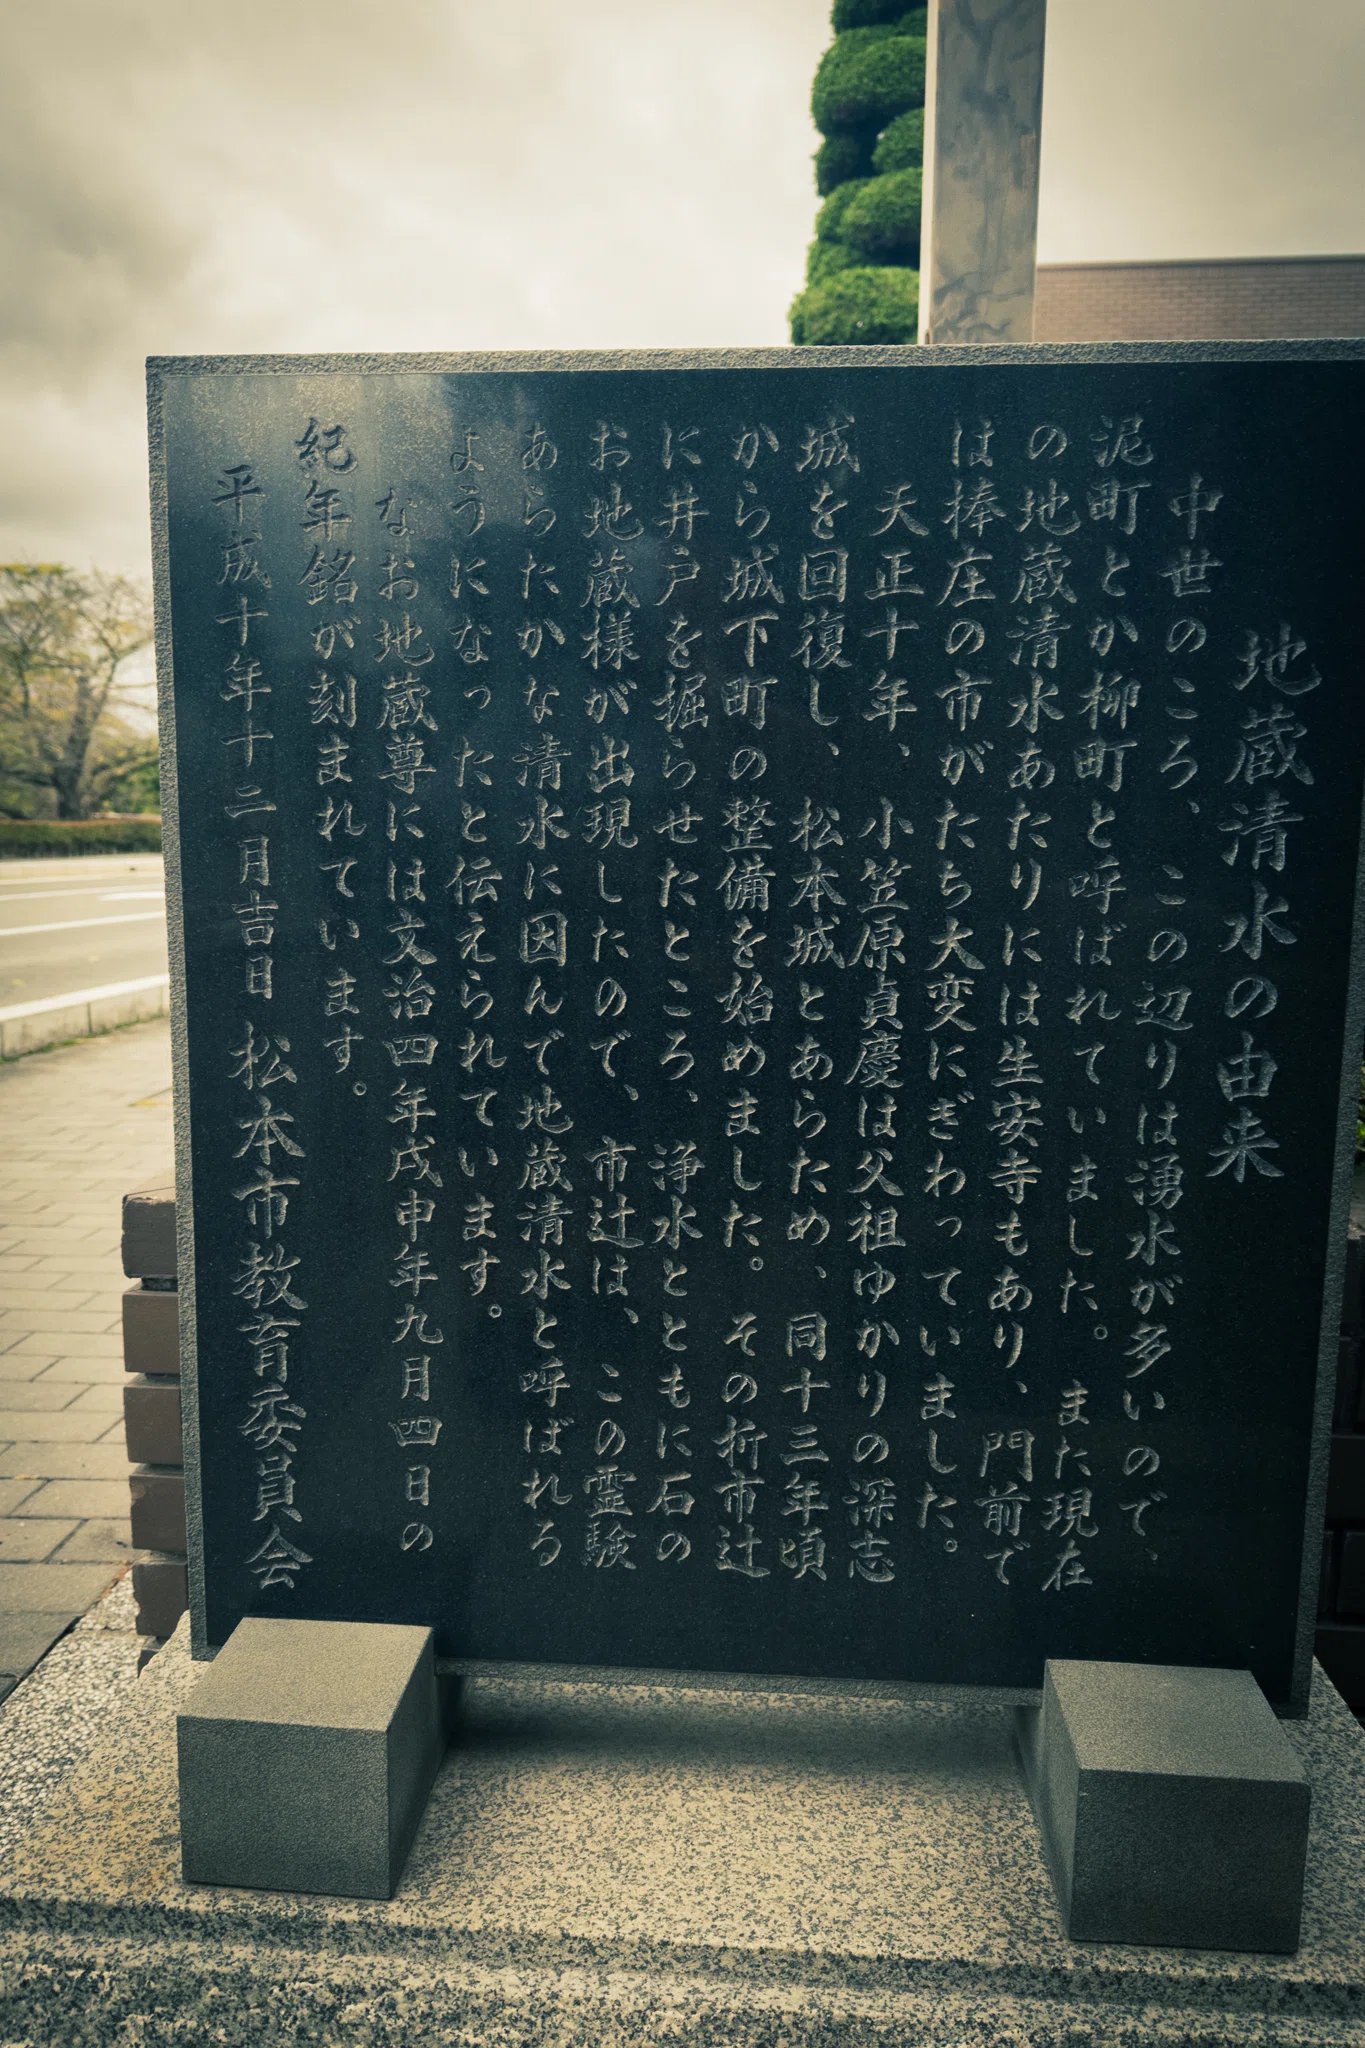 地蔵清水の由来
中世のころ、この辺りは湧水が多いので、
泥町とか柳町と呼ばれていました。また現在
の地蔵清水あたりには生安寺もあり、門前で
は捧庄の市がたち大変にぎわっていました。
天正十年、小笠原貞慶は父祖ゆかりの深志
城を回復し、松本城とあらため、同十三年頃
から城下町の整備を始めました。その折市辻
に井戸を掘らせたところ、浄水とともに石の
お地蔵様が出現したので、市辻は、この霊験
あらたかな清水に因んで地蔵清水と呼ばれる
ようになったと伝えられています。
なお地蔵尊には文治四年戌申年九月四日の
紀年銘が刻まれています。
平成十年十二月吉日 松本市教育委員会